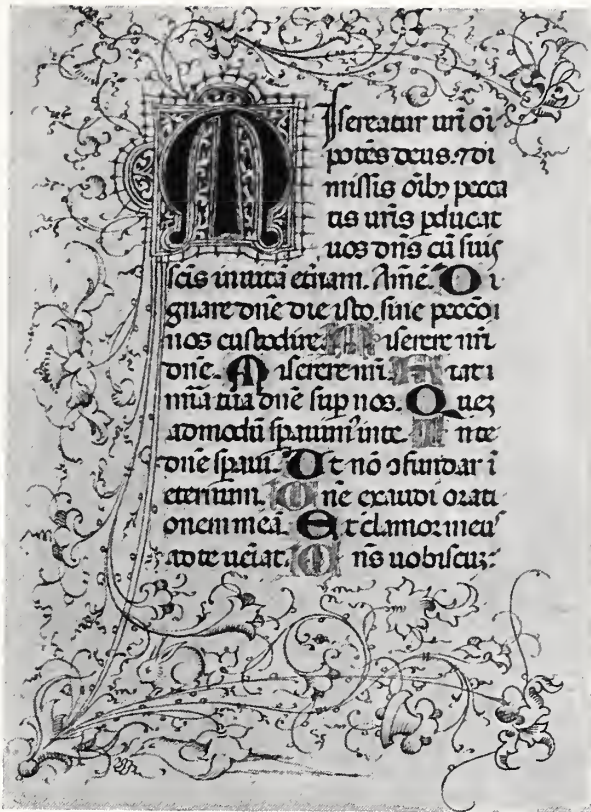 Misereatur uri oi
potēs deus. ⁊ di
missis oibꝫ pecca
tis uris pducat
uos dns cū suis
scis in uitā eternam. Amē. Di
gnare dne die isto. sine pecco
nos custodire. Miserere nri
dne. Miserere nri. Fiat mi
nia tua dne sup nos. Quēz
admodū spauim᷒ in te. In te
dne spaui. Ut nō ꝯfundar ī
eternum. Dne exaudi orati
onem meā. Et clamor meus
ad te ueiat. Dns uobiscuz: